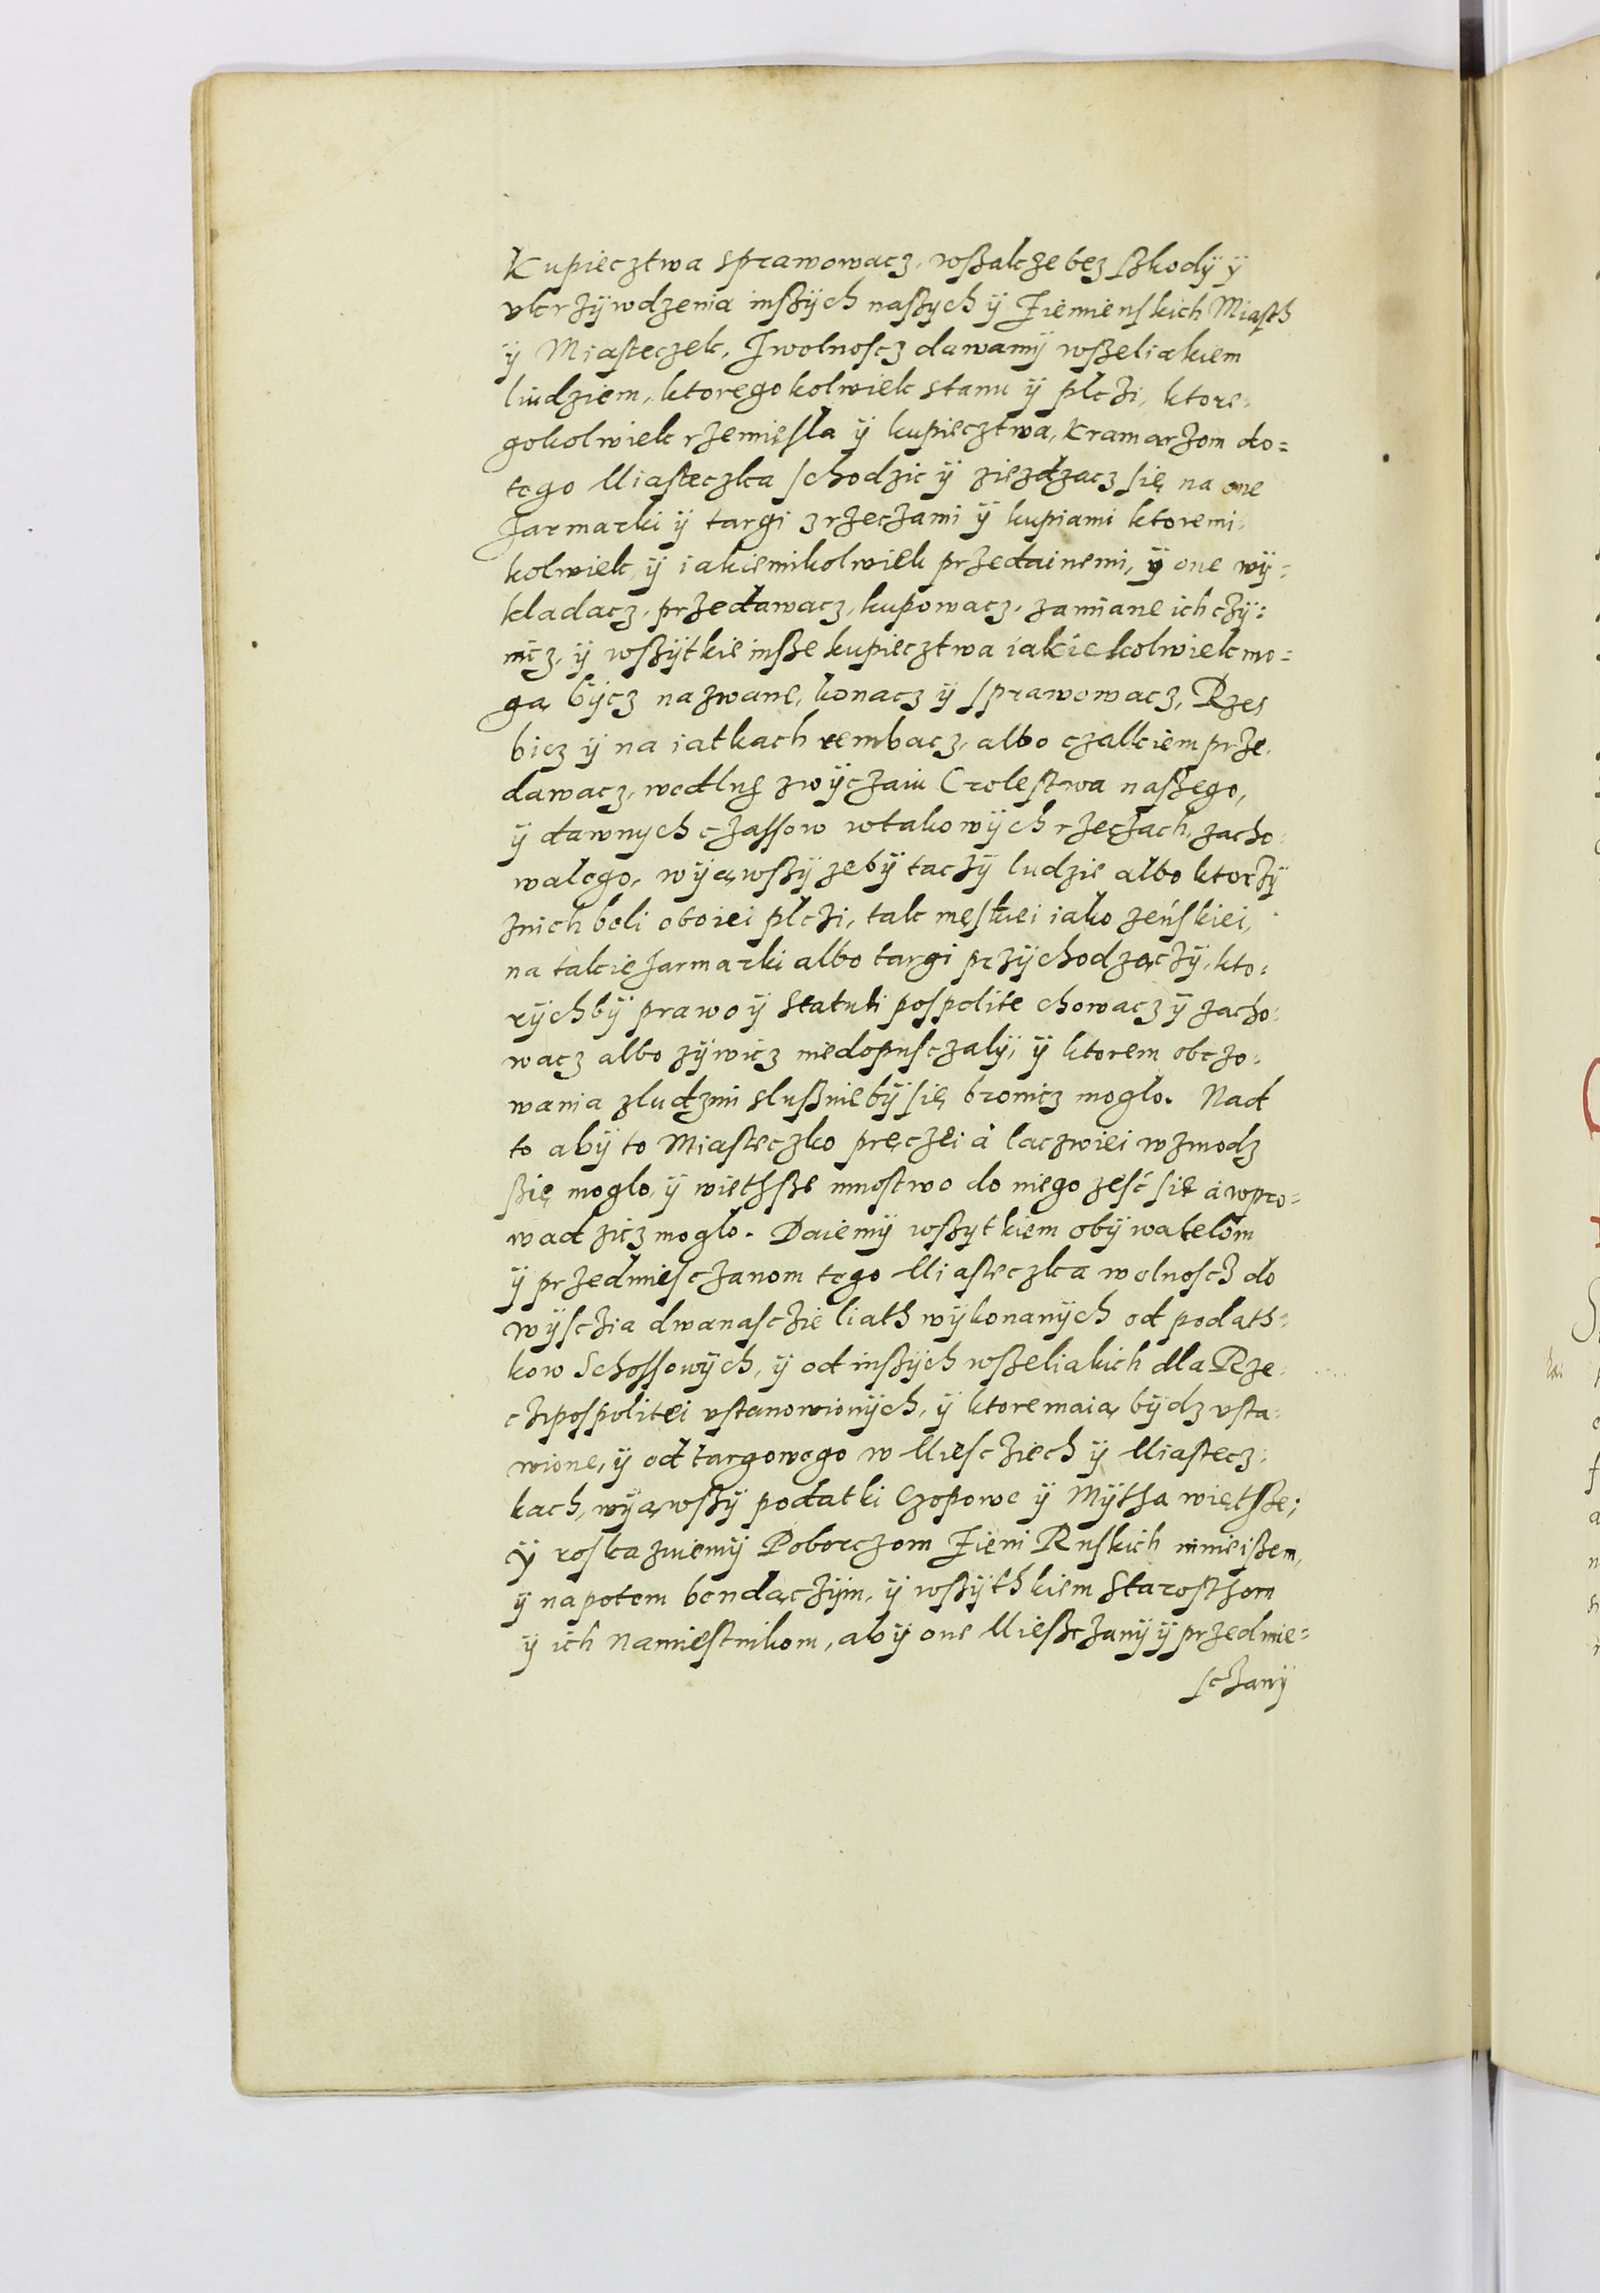 Kupiecztwa sprawowacz, wßakze bez ßkodÿ ÿ
vkrzÿwdzenia inßÿch naßych ÿ Ziemienskich Miasth
ÿ Miasteczek, Jwolnoscz dawamÿ wßeliakiem
liudziem, ktoregokolwiek stanu ÿ plczi, ktore-
gokolwiek rzemięsla ÿ kupiecztwa, Kramarzom do=
tego Miasteczka schodzic ÿ ziezdzacz się na one
Jarmarki ÿ targi zrzeczami ÿ kupiami ktoremi-
kolwiek, ÿ iakiemikolwiek przedainemi, ÿ one wÿ=
kladacz, przedawacz, kupowacz, zamiane ich czÿ=
nicz, ÿ wßÿtkie inße kupiecztwa iakiekolwiek mo=
gą bÿcz nazwane, konacz ÿ sprawowacz, Rzes
bicz ÿ na iatkach rembacz, albo czalkiem prze-
dawacz, wedlug zwÿczaiu Crolestwa naßego,
ÿ dawnych czassow wtakowÿch rzeczach, zacho-
walego, wÿąwßÿ zebÿ taczÿ ludzie albo ktorzÿ
znich beli oboiei plczi, tak męskiei iako zeńskiei,
na takie Jarmarki albo targi przÿchodzączÿ, kto=
rÿchbÿ prawo ÿ Statuti pospolite chowacz ÿ zacho-
wacz albo zÿwicz niedopusczalÿ, ÿ ktorem obczo-
wania zludzmi slußnie bÿ się bronicz moglo. Nad
to abÿ to Miasteczko pręczei à laczwiei wzmodz
ßię moglo, ÿ wiethße mnostwo do niego ześć się à wpro=
wadzicz moglo. Daiemÿ wßytkiem obÿwatelom
ÿ przedmiesczanom tego Miasteczka wolnoscz do
wÿsczia dwanasczie liath wÿkonanÿch od podath=
kow Schossowÿch, ÿ od inßÿch wßeliakich dla Rze-
czipospolitei vstanowionÿch, ÿ ktore maią bÿdz vsta-
wione, ÿ od targowego w Miescziech ÿ Miastecz-
kach, wÿąwßÿ podatki Czopowe ÿ Mÿtha wiethße;
ÿ roskazuiemÿ Poborczom Ziem Ruskich ninieißem,
ÿ napotem bendączÿm, ÿ wßÿthkiem Starosthom
ÿ ich Namiestnikom, abÿ one Mießczanÿ ÿ przedmie=
sczanÿ